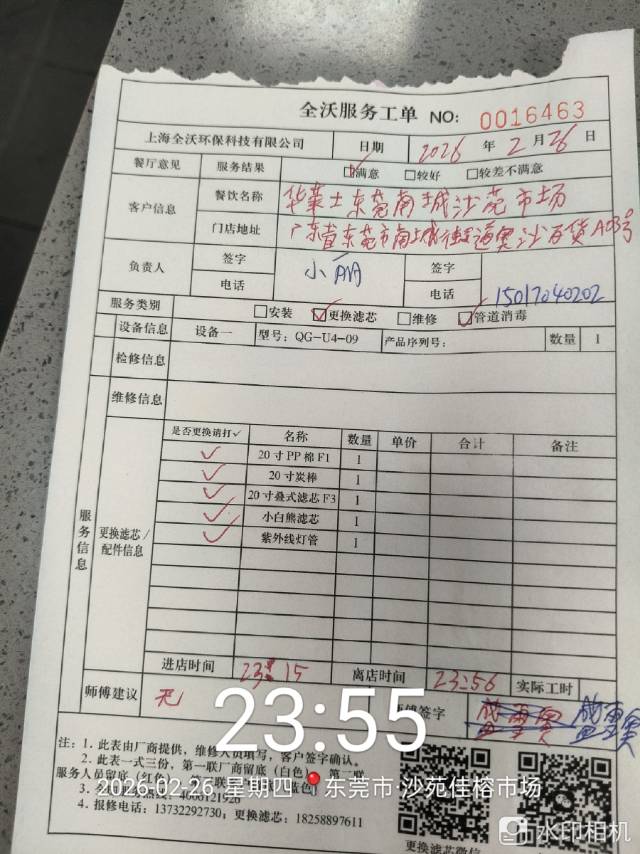 全沃服务工单 NO: 0016463
上海全沃环保科技有限公司 日期 2026 年 2 月 26 日
餐厅意见 服务结果 ☑满意 □较好 □较差不满意
客户信息 餐饮名称 华莱士东莞南城沙莞市场
门店地址 广东省东莞市南城街道奥沙百货A03号
负责人 签字 小丽 签字
电话 电话 15017040202
服务类别 □安装 ☑更换滤芯 □维修 ☑管道消毒
设备信息 设备一 型号: QG-U4-09 产品序列号: 数量 1
检修信息
维修信息
服务信息
更换滤芯/配件信息
是否更换请打✓ 名称 数量 单价 合计 备注
✓ 20寸PP棉F1 1
✓ 20寸炭棒 1
✓ 20寸叠式滤芯F3 1
✓ 小白熊滤芯 1
✓ 紫外线灯管 1
进店时间 23:15 离店时间 23:56 实际工时
师傅建议 无 师傅签字
23:55
注: 1. 此表由厂商提供, 维修人员填写, 客户签字确认。
2. 此表一式三份, 第一联厂商留底(白色), 第二联
服务人员留底(红色)
2026-02-26 星期四 东莞市·沙苑佳榕市场
4000121926
4. 报修电话: 13732292730; 更换滤芯: 18258897611
更换滤芯微信
水印相机